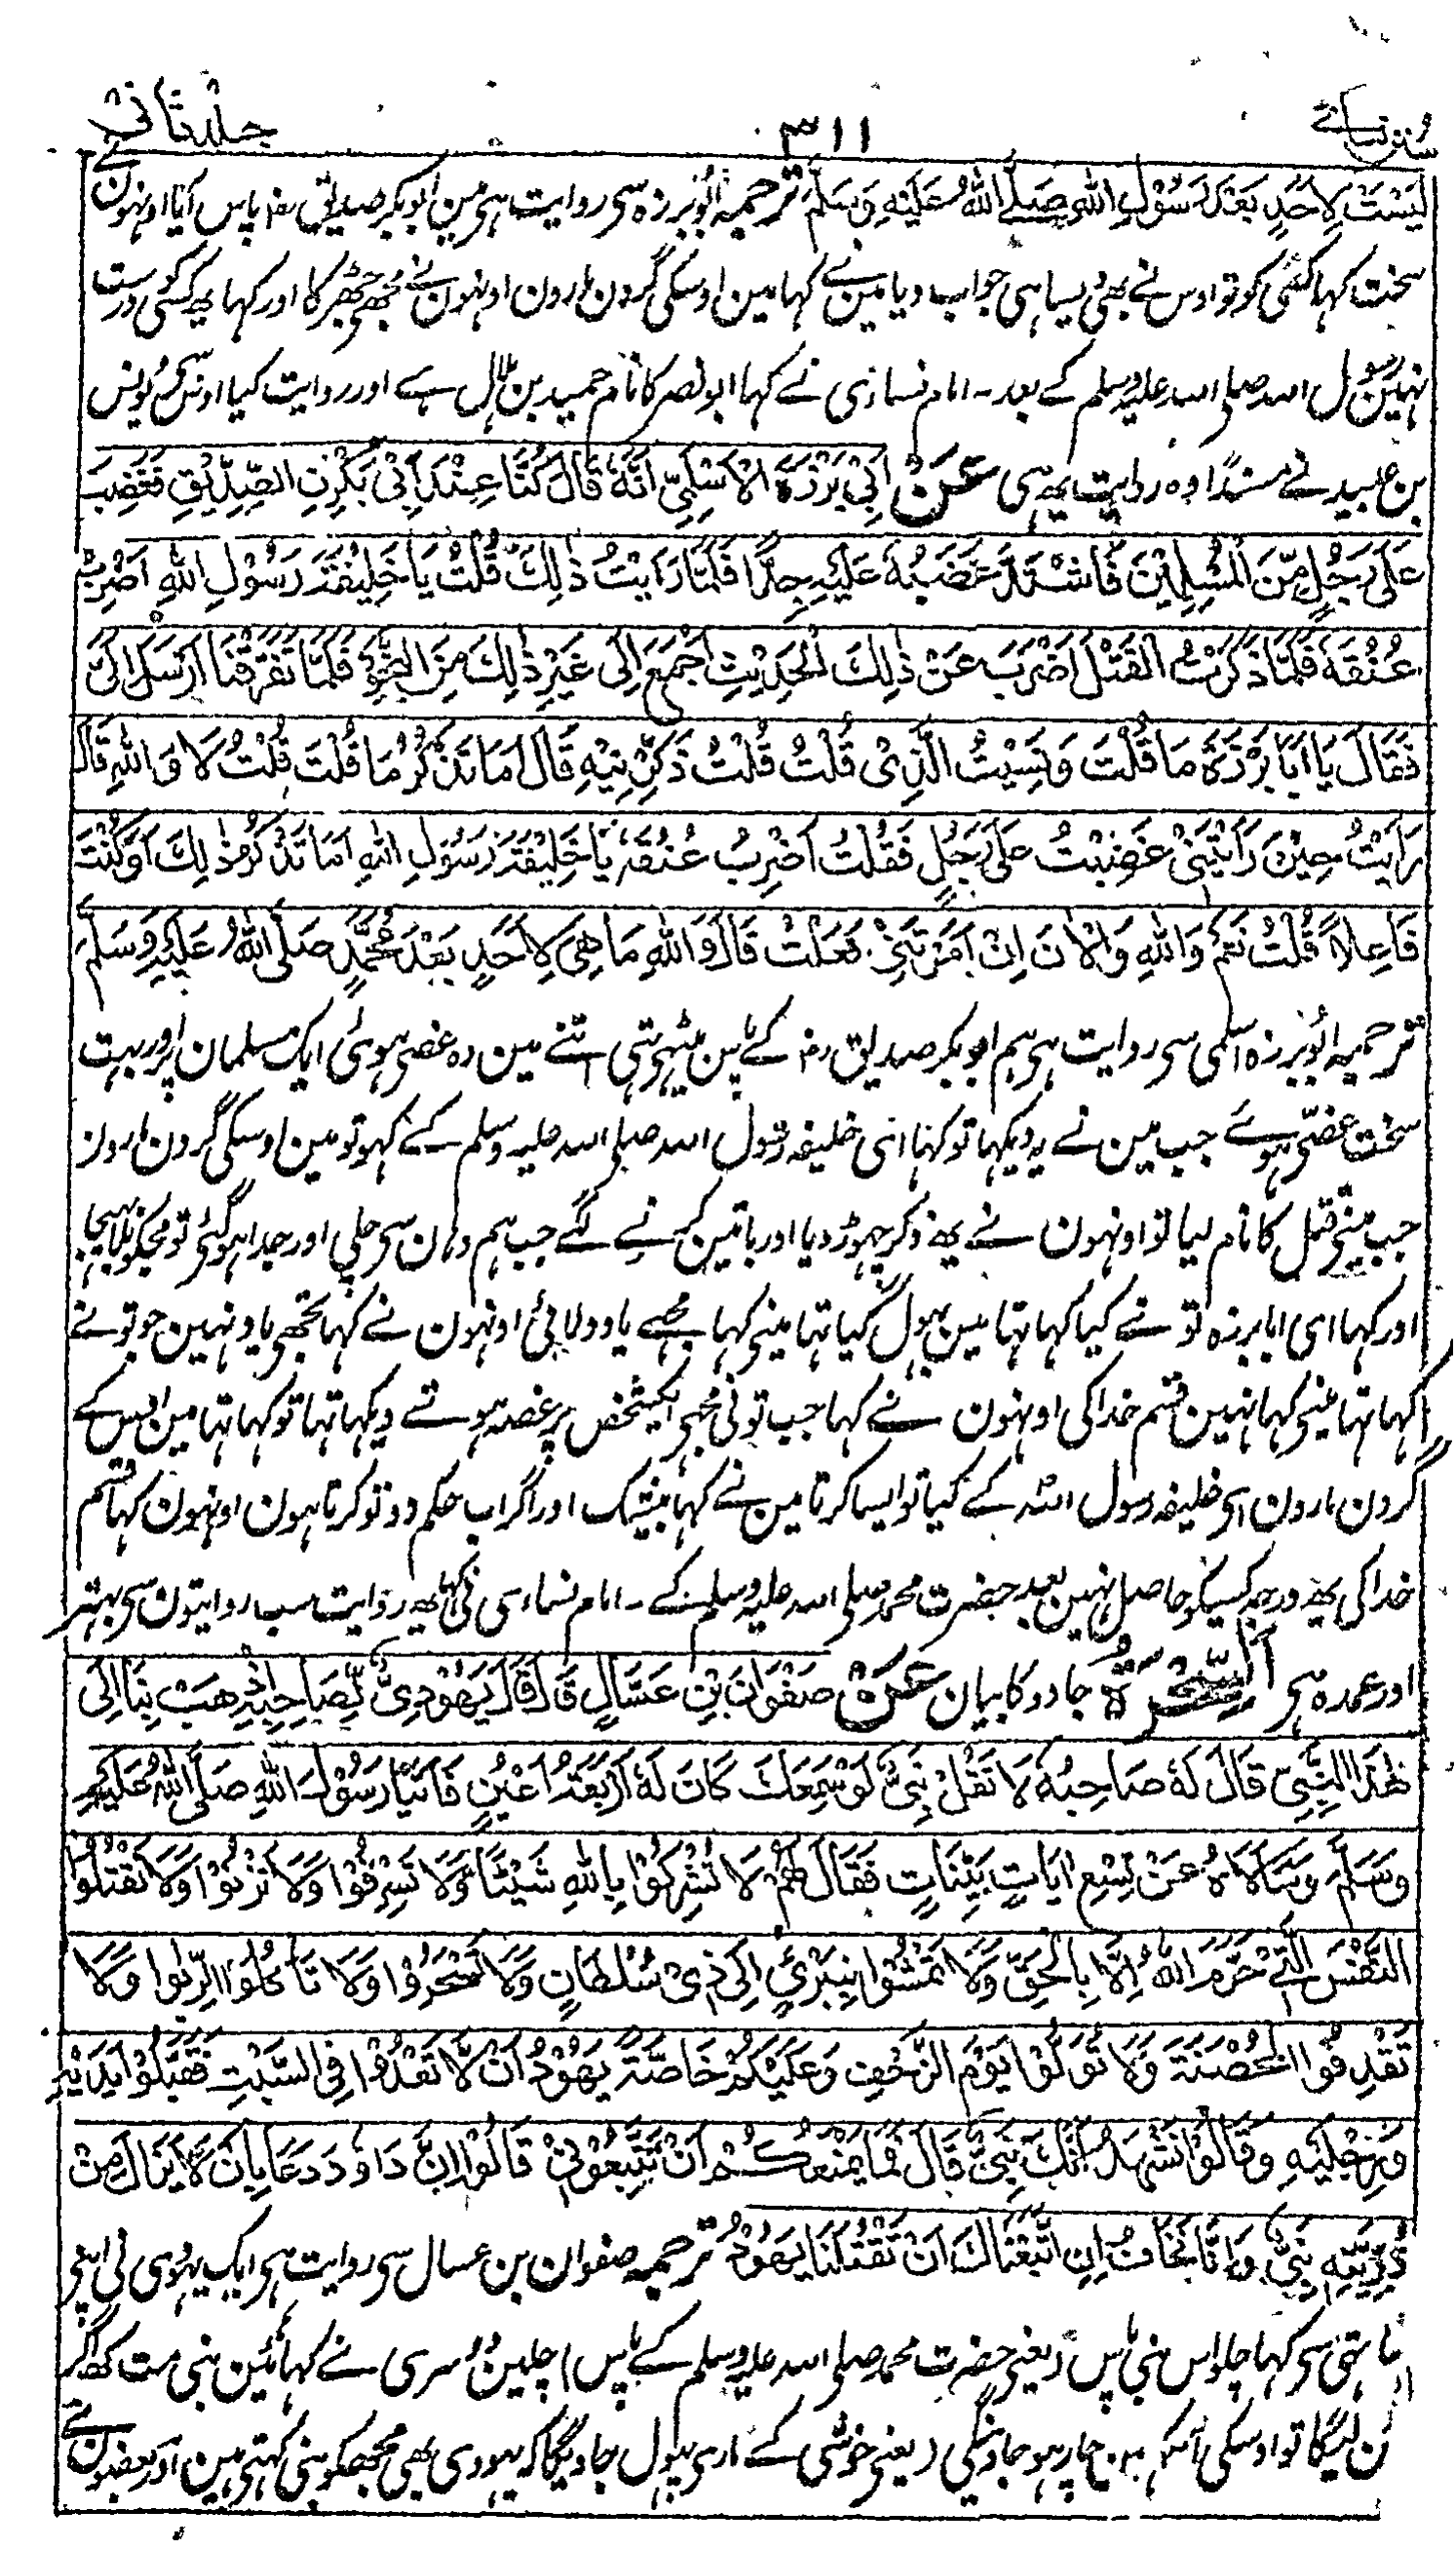 سنن نسائے ۳۱۱ جلد ثانی
لَيْسَتْ لِاَحَدٍ بَعْدَ رَسُوْلِ اللّٰهِ صَلَّے اللّٰهُ عَلَيْهِ وَسَلَّمَ ترجمہ ابُو برزہ سی روایت ہی مین ابو بکر صدیق رضہ پاس آیا اونہون نے
سخت کہا کسی کو تو اوس نے بھی ویسا ہی جواب دیا مین نے کہا مین اوسکی گردن مارون اونہون نے مُجھی جھڑکا اور کہا یہ کسی کو درست
نہین رسول اللہ صلی اللہ علیہ وسلم کے بعد ۔ امام نسائی نے کہا ابو نصر کا نام حمید بن ہلال ہے اور روایت کیا اوس سی یُونس
بن عبید نے مسندًا وہ روایت یہ ہی عَنْ اَبِيْ بَرْزَةَ الْاَسْلَمِيِّ اَنَّهٗ قَالَ كُنَّا عِنْدَ اَبِيْ بَكْرِنِ الصِّدِّيْقِ فَغَضِبَ
عَلٰى رَجُلٍ مِّنَ الْمُسْلِمِيْنَ فَاشْتَدَّ غَضَبُهٗ عَلَيْهِ جِدًّا فَلَمَّا رَاَيْتُ ذٰلِكَ قُلْتُ يَا خَلِيْفَةَ رَسُوْلِ اللّٰهِ اَضْرِبُ
عُنُقَهٗ فَلَمَّا ذَكَرْتُ الْقَتْلَ اَضْرَبَ عَنْ ذٰلِكَ الْحَدِيْثِ اَجْمَعَ اِلٰى غَيْرِ ذٰلِكَ مِنَ النَّحْوِ فَلَمَّا تَفَرَّقْنَا اَرْسَلَ اِلَيَّ
فَقَالَ يَا اَبَا بَرْزَةَ مَا قُلْتَ وَنَسِيْتُ الَّذِيْ قُلْتُ قُلْتُ ذَكِّرْنِيْهِ قَالَ اَمَا تَذْكُرُ مَا قُلْتَ قُلْتُ لَا وَاللّٰهِ قَالَ
رَاَيْتُ حِيْنَ رَاَيْتَنِيْ غَضِبْتُ عَلٰى رَجُلٍ فَقُلْتُ اَضْرِبُ عُنُقَهٗ يَا خَلِيْفَةَ رَسُوْلِ اللّٰهِ اَمَا تَذْكُرُ ذٰلِكَ اَوَكُنْتَ
فَاعِلًا قُلْتُ نَعَمْ وَاللّٰهِ وَالْاٰنَ اِنْ اَمَرْتَنِيْ فَعَلْتُ قَالَ وَاللّٰهِ مَا هِيَ لِاَحَدٍ بَعْدَ مُحَمَّدٍ صَلَّى اللّٰهُ عَلَيْهِ وَسَلَّمَ
ترجمہ ابُو برزہ اسلمی سی روایت ہی ہم ابو بکر صدیق رضہ کے پاس بیٹھی تہی اتنے مین وہ غصی ہوئی ایک مسلمان پر اور بہت
سخت غصّی ہوئے جب مین نے یہ دیکہا تو کہا ای خلیفہ رسول اللہ صلی اللہ علیہ وسلم کے کہو تو مین اوسکی گردن مارون
جب مینی قتل کا نام لیا تو اونہون نے یہ ذکر چہوڑ دیا اور باتین کرنے لگے جب ہم وہان سی چلی اور جدا ہوگئی تو مجکو بلا بہیجا
اور کہا ای ابا برزہ تو نے کیا کہا تہا مین بہول گیا تہا مینی کہا مجھے یاد دلائی اونہون نے کہا تجھی یاد نہین جو تو نے
کہا تہا مینی کہا نہین قسم خدا کی اونہون نے کہا جب تو نی مجہی ایک شخص پر غصہ ہوتے دیکہا تہا تو کہا تہا مین اس کے
گردن مارون ای خلیفہ رسول اللہ کے کیا تو ایسا کرتا مین نے کہا بیشک اور اگر اب حکم دو تو کرتا ہون اونہون کہا قسم
خدا کی یہ درجہ کسیکو حاصل نہین بعد حضرت محمد صلی اللہ علیہ وسلم کے ۔ امام نسائی نی کہا یہ روایت سب روایتون سی بہتر
اور عمدہ ہی اَلسِّحْرَةُ جادو کا بیان عَنْ صَفْوَانَ بْنِ عَسَّالٍ قَالَ قَالَ يَهُوْدِيٌّ لِّصَاحِبِهِ اذْهَبْ بِنَا اِلٰى
هٰذَا النَّبِيِّ قَالَ لَهٗ صَاحِبُهٗ لَا تَقُلْ نَبِيٌّ لَوْ سَمِعَكَ كَانَ لَهٗ اَرْبَعَةُ اَعْيُنٍ فَاَتَيَا رَسُوْلَ اللّٰهِ صَلَّى اللّٰهُ عَلَيْهِ
وَسَلَّمَ وَسَاَلَاهُ عَنْ تِسْعِ اٰيَاتٍ بَيِّنَاتٍ فَقَالَ لَهُمْ لَا تُشْرِكُوْا بِاللّٰهِ شَيْئًا وَّلَا تَسْرِقُوْا وَلَا تَزْنُوْا وَلَا تَقْتُلُوا
النَّفْسَ الَّتِيْ حَرَّمَ اللّٰهُ اِلَّا بِالْحَقِّ وَلَا تَمْشُوْا بِبَرِيْءٍ اِلٰى ذِيْ سُلْطَانٍ وَلَا تَسْحَرُوْا وَلَا تَاْكُلُوا الرِّبٰوا وَلَا
تَقْذِفُوا الْمُحْصَنَةَ وَلَا تَوَلَّوْا يَوْمَ الزَّحْفِ وَعَلَيْكُمْ خَاصَّةً يَهُوْدُ اَنْ لَّا تَعْدُوْا فِي السَّبْتِ فَقَبَّلُوْا يَدَيْهِ
وَرِجْلَيْهِ وَقَالُوْا نَشْهَدُ اَنَّكَ نَبِيٌّ قَالَ فَمَا يَمْنَعُكُمْ اَنْ تَتَّبِعُوْنِيْ قَالُوْا اِنَّ دَاوٗدَ دَعَا بِاَنْ لَّا يَزَالَ مِنْ
ذُرِّيَّتِهٖ نَبِيٌّ وَاِنَّا نَخَافُ اِنِ اتَّبَعْنَاكَ اَنْ تَقْتُلَنَا يَهُوْدُ ترجمہ صفوان بن عسال سی روایت ہی ایک یہودی نی اپنی
ساتھی سی کہا چلو اس نبی پاس (یعنی حضرت محمد صلی اللہ علیہ وسلم کے پاس) چلین دُوسری نے کہا نبی مت کہہ اگر
سن لیگا تو اوسکی آنکہین چار ہو جاوینگی (یعنی خوشی کے ماری پہول جاویگا کہ یہودی بھی مجھکو نبی کہتی ہین اور بعضون نے